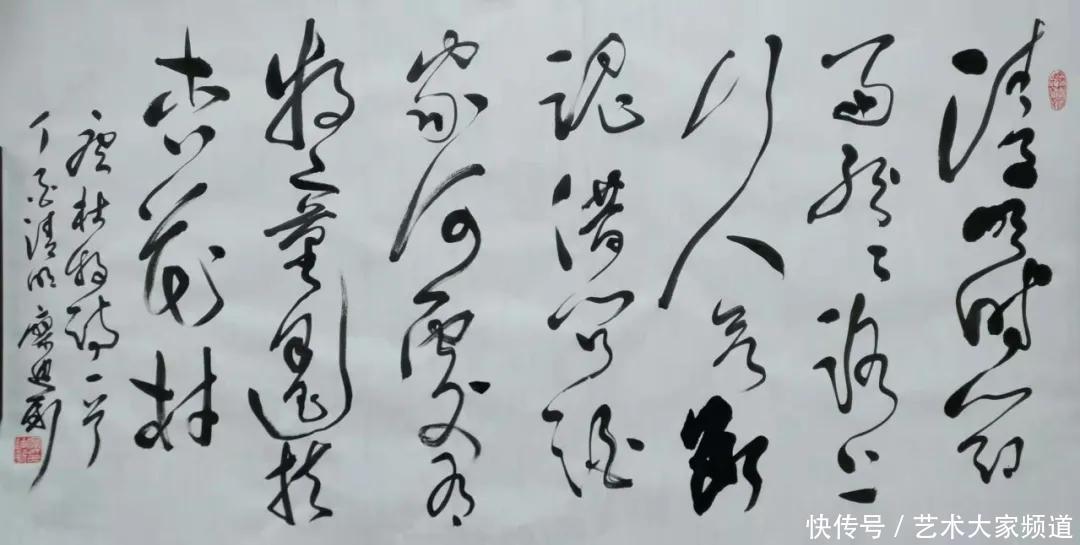 清明时节
雨纷纷路上
行人欲断
魂借问酒
家何处有
牧童遥指
杏花村
唐杜牧诗一首
清明廖
快传号 / 艺术大家频道